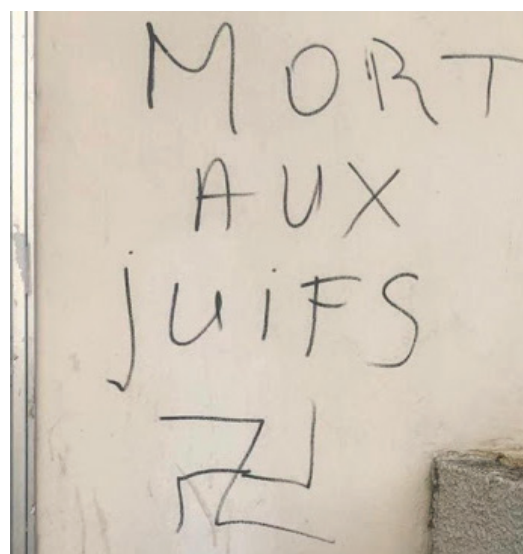 MORT
AUX
juiFS